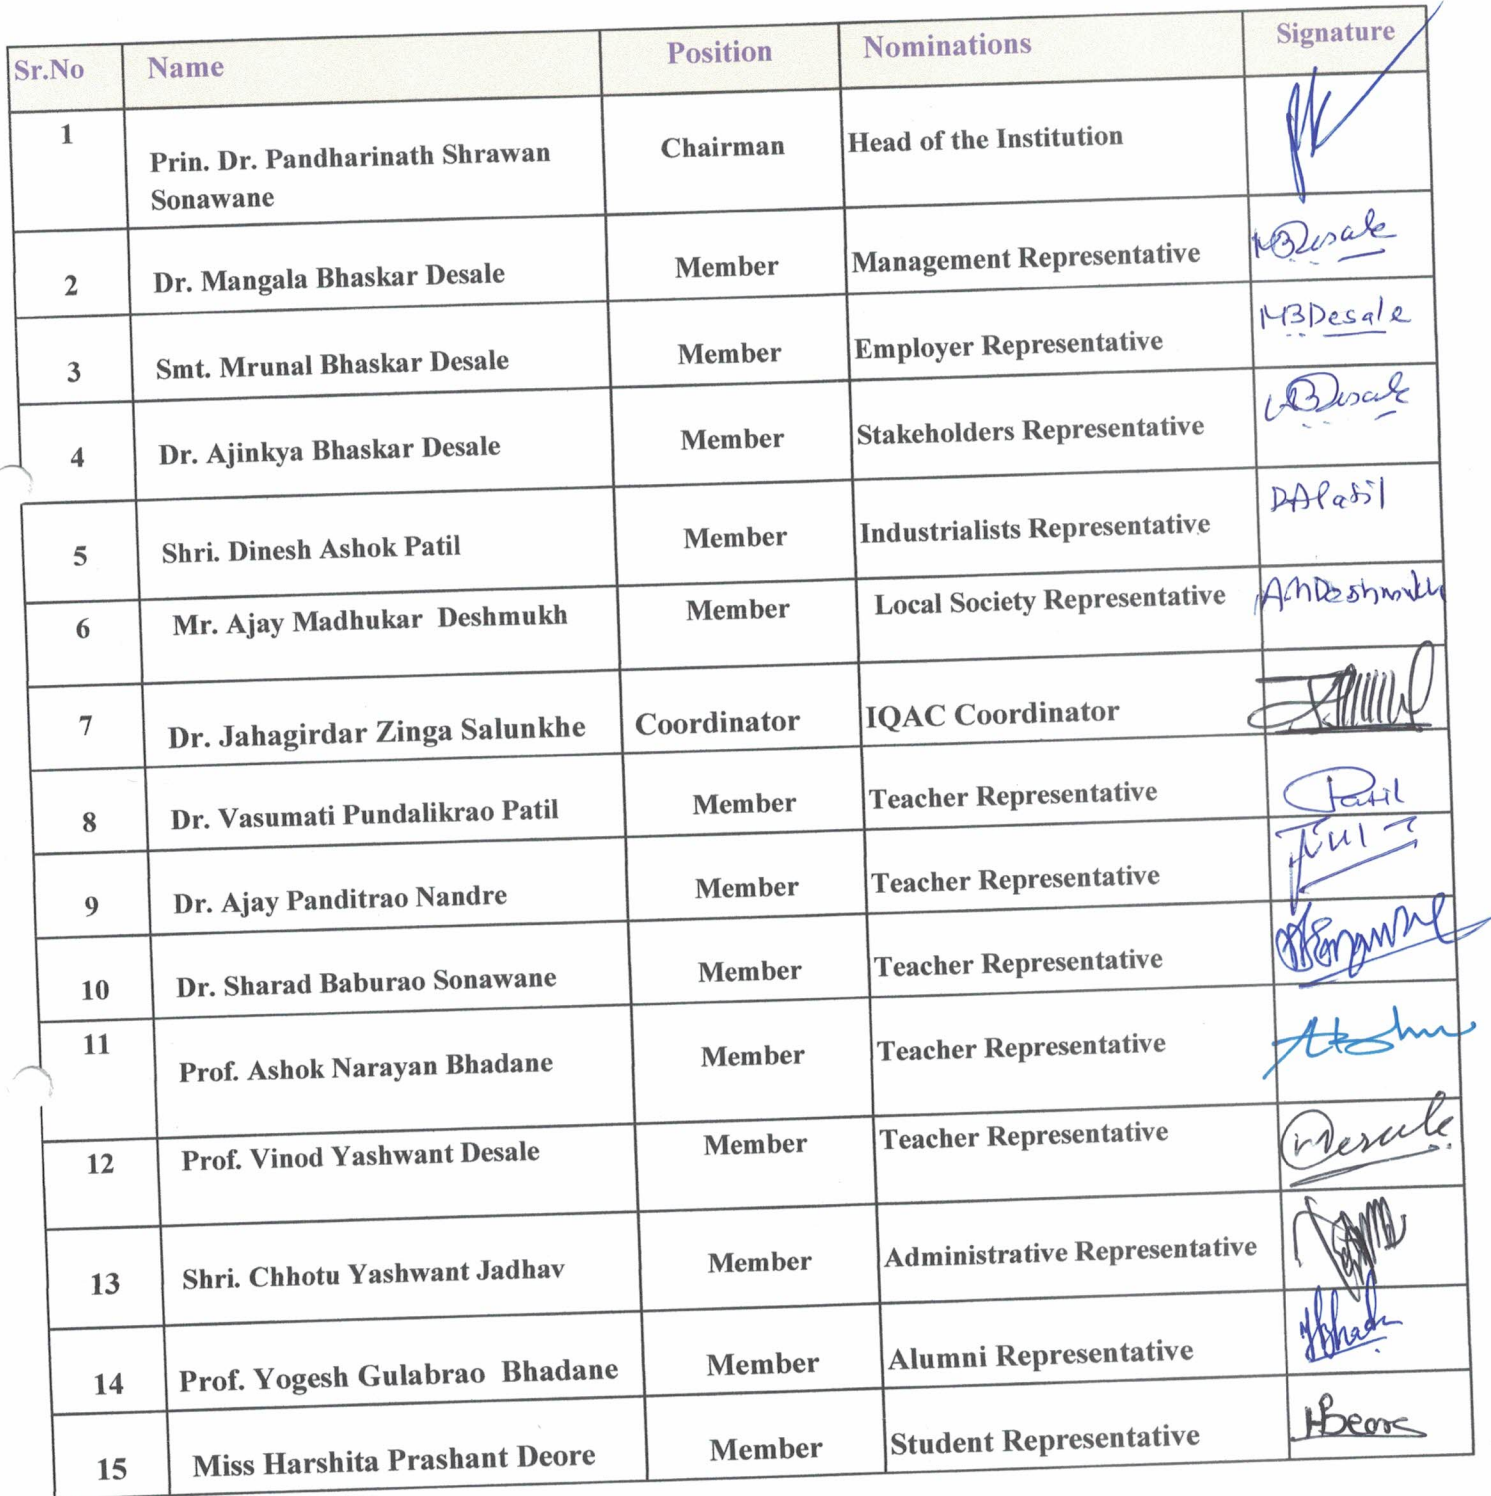 Sr.No Name Position Nominations Signature
1 Prin. Dr. Pandharinath Shrawan Chairman Head of the Institution
Sonawane
2 Dr. Mangala Bhaskar Desale Member Management Representative MBDesale
3 Smt. Mrunal Bhaskar Desale Member Employer Representative MBDesale
4 Dr. Ajinkya Bhaskar Desale Member Stakeholders Representative ABDesale
5 Shri. Dinesh Ashok Patil Member Industrialists Representative DAPatil
6 Mr. Ajay Madhukar Deshmukh Member Local Society Representative AMDeshmukh
7 Dr. Jahagirdar Zinga Salunkhe Coordinator IQAC Coordinator
8 Dr. Vasumati Pundalikrao Patil Member Teacher Representative Patil
9 Dr. Ajay Panditrao Nandre Member Teacher Representative
10 Dr. Sharad Baburao Sonawane Member Teacher Representative
11 Prof. Ashok Narayan Bhadane Member Teacher Representative
12 Prof. Vinod Yashwant Desale Member Teacher Representative Desale
13 Shri. Chhotu Yashwant Jadhav Member Administrative Representative
14 Prof. Yogesh Gulabrao Bhadane Member Alumni Representative
15 Miss Harshita Prashant Deore Member Student Representative HDeore